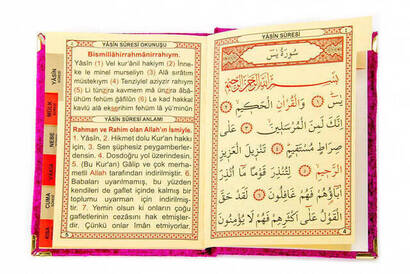 YÂSİN SÛRESİ OKUNUŞU
Bismillâhirrahmânirrahıym.
Yâsîn (1) Vel kur'ânil hakiym (2) İnne-
ke le minel murseliyn (3) Alâ sırâtım
müstekıym (4) Tenziylel aziyzir rahıym
(5) Li tünzira kavmem mâ ünzira âbâ-
ühüm fehüm gâfilûn (6) Le kad hakkal
kavlü alâ ekserihim fehüm lâ yü'minûn
YÂSİN SÛRESİ ANLAMI
Rahman ve Rahim olan Allah'ın İsmiyle.
1. Yâsîn, 2. Hikmet dolu Kur'an hakkı
için, 3. Sen şüphesiz peygamberler-
densin. 4. Dosdoğru yol üzerindesin.
5. (Bu Kur'an) Gâlip ve çok merha-
metli Allah tarafından indirilmiştir. 6.
Babaları uyarılmamış, bu yüzden
kendileri de gaflet içinde kalmış bir
toplumu uyarman için indirilmiş-
tir. 7. Yemin olsun ki onların çoğu
gafletlerinin cezasını hak etmişler-
dir. Çünkü onlar îman etmiyorlar.
YÂSİN
MÜLK
NEBE
VAKIA
CUMA
KISA
YÂSİN SÛRESİ
سُورَةُ يٰسٓ
بِسْمِ اللّٰهِ الرَّحْمٰنِ الرَّحِيمِ
يٰسٓ ﴿١﴾ وَالْقُرْاٰنِ الْحَكِيمِ ﴿٢﴾
اِنَّكَ لَمِنَ الْمُرْسَلِينَ ﴿٣﴾ عَلٰى
صِرَاطٍ مُسْتَقِيمٍ ﴿٤﴾ تَنْزِيلَ الْعَزِيزِ
الرَّحِيمِ ﴿٥﴾ لِتُنْذِرَ قَوْمًا مَٓا اُنْذِرَ
اٰبَٓاؤُهُمْ فَهُمْ غَافِلُونَ ﴿٦﴾ لَقَدْ حَقَّ
الْقَوْلُ عَلٰٓى اَكْثَرِهِمْ فَهُمْ لَا يُؤْمِنُونَ
4